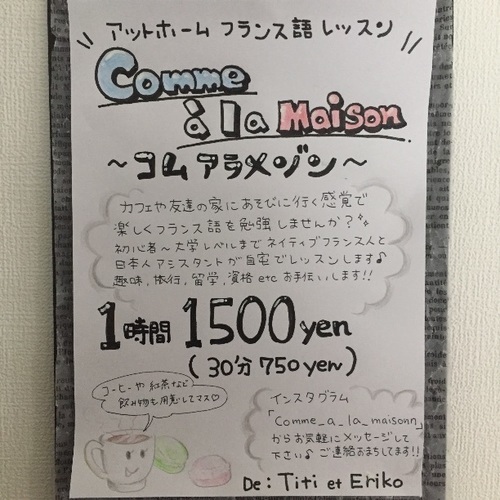 アットホーム フランス語 レッスン
Comme
à la Maison
～コム アラ メゾン～
カフェや友達の家にあそびに行く感覚で
楽しくフランス語を勉強しませんか？
初心者～大学レベルまでネイティブフランス人と
日本人アシスタントが自宅でレッスンします♪
趣味,旅行,留学,資格etcお手伝いします!!
1時間 1500yen
(30分 750yen)
コーヒーや紅茶など
飲み物も用意してマス♡
インスタグラム
「Comme_a_la_maisonn」
からお気軽にメッセージして
下さい♪ ご連絡おまちしてます!!
De: Titi et Eriko